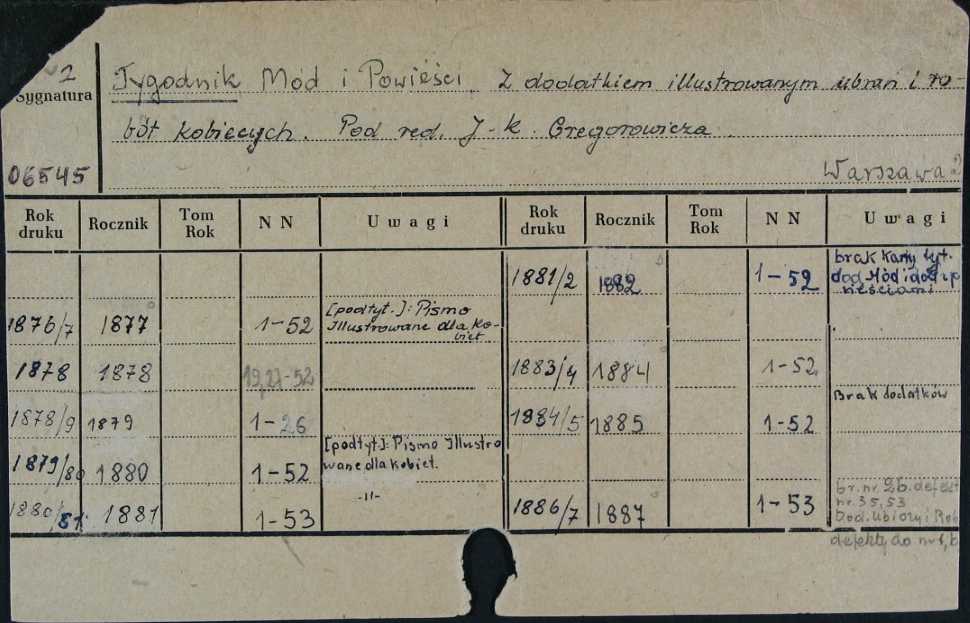 2
Sygnatura
06545
Tygodnik Mód i Powieści z dodatkiem illustrowanym ubrań i ro-
bót kobiecych. Pod red. J-K. Gregorowicza
Warszawa
Rok druku | Rocznik | Tom Rok | N N | Uwagi | Rok druku | Rocznik | Tom Rok | N N | Uwagi
1881/2 | 1882 | 1-52 | brak Karty tyt.
dod Mód i dod
1876/7 | 1877 | 1-52 | [podtyt.]: Pismo
Illustrowane dla Ko-
biet
1878 | 1878 | 19,27-52
1883/4 | 1884 | 1-52
1878/9 | 1879 | 1-26
1884/5 | 1885 | 1-52 | Brak dodatków
1879/80 | 1880 | 1-52 | [podtyt]: Pismo Illustro
wane dla kobiet.
1880/81 | 1881 | 1-53 | -11-
1886/7 | 1887 | 1-53 | br. nr. 26. defekt
nr. 35, 53
Dod. Ubiory i Rob
defekty do nr